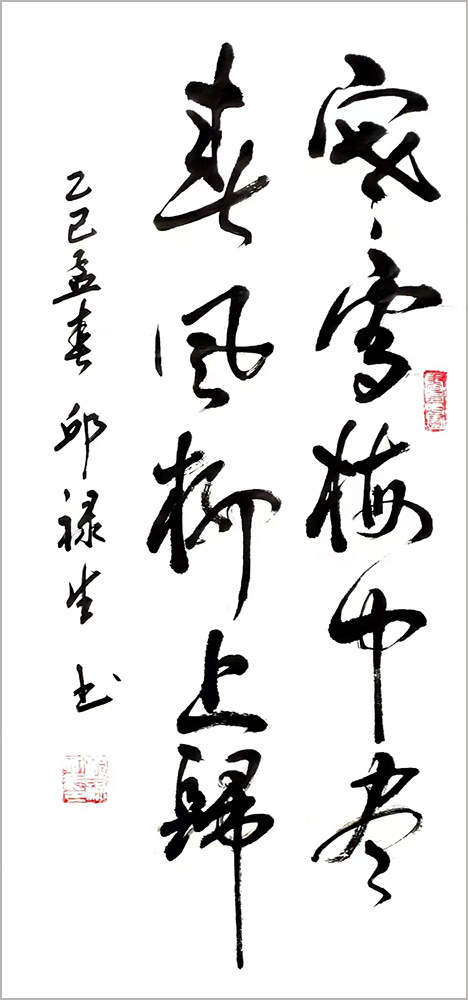 寒雪梅中尽
春风柳上歸
乙巳孟春 邱禄生 书